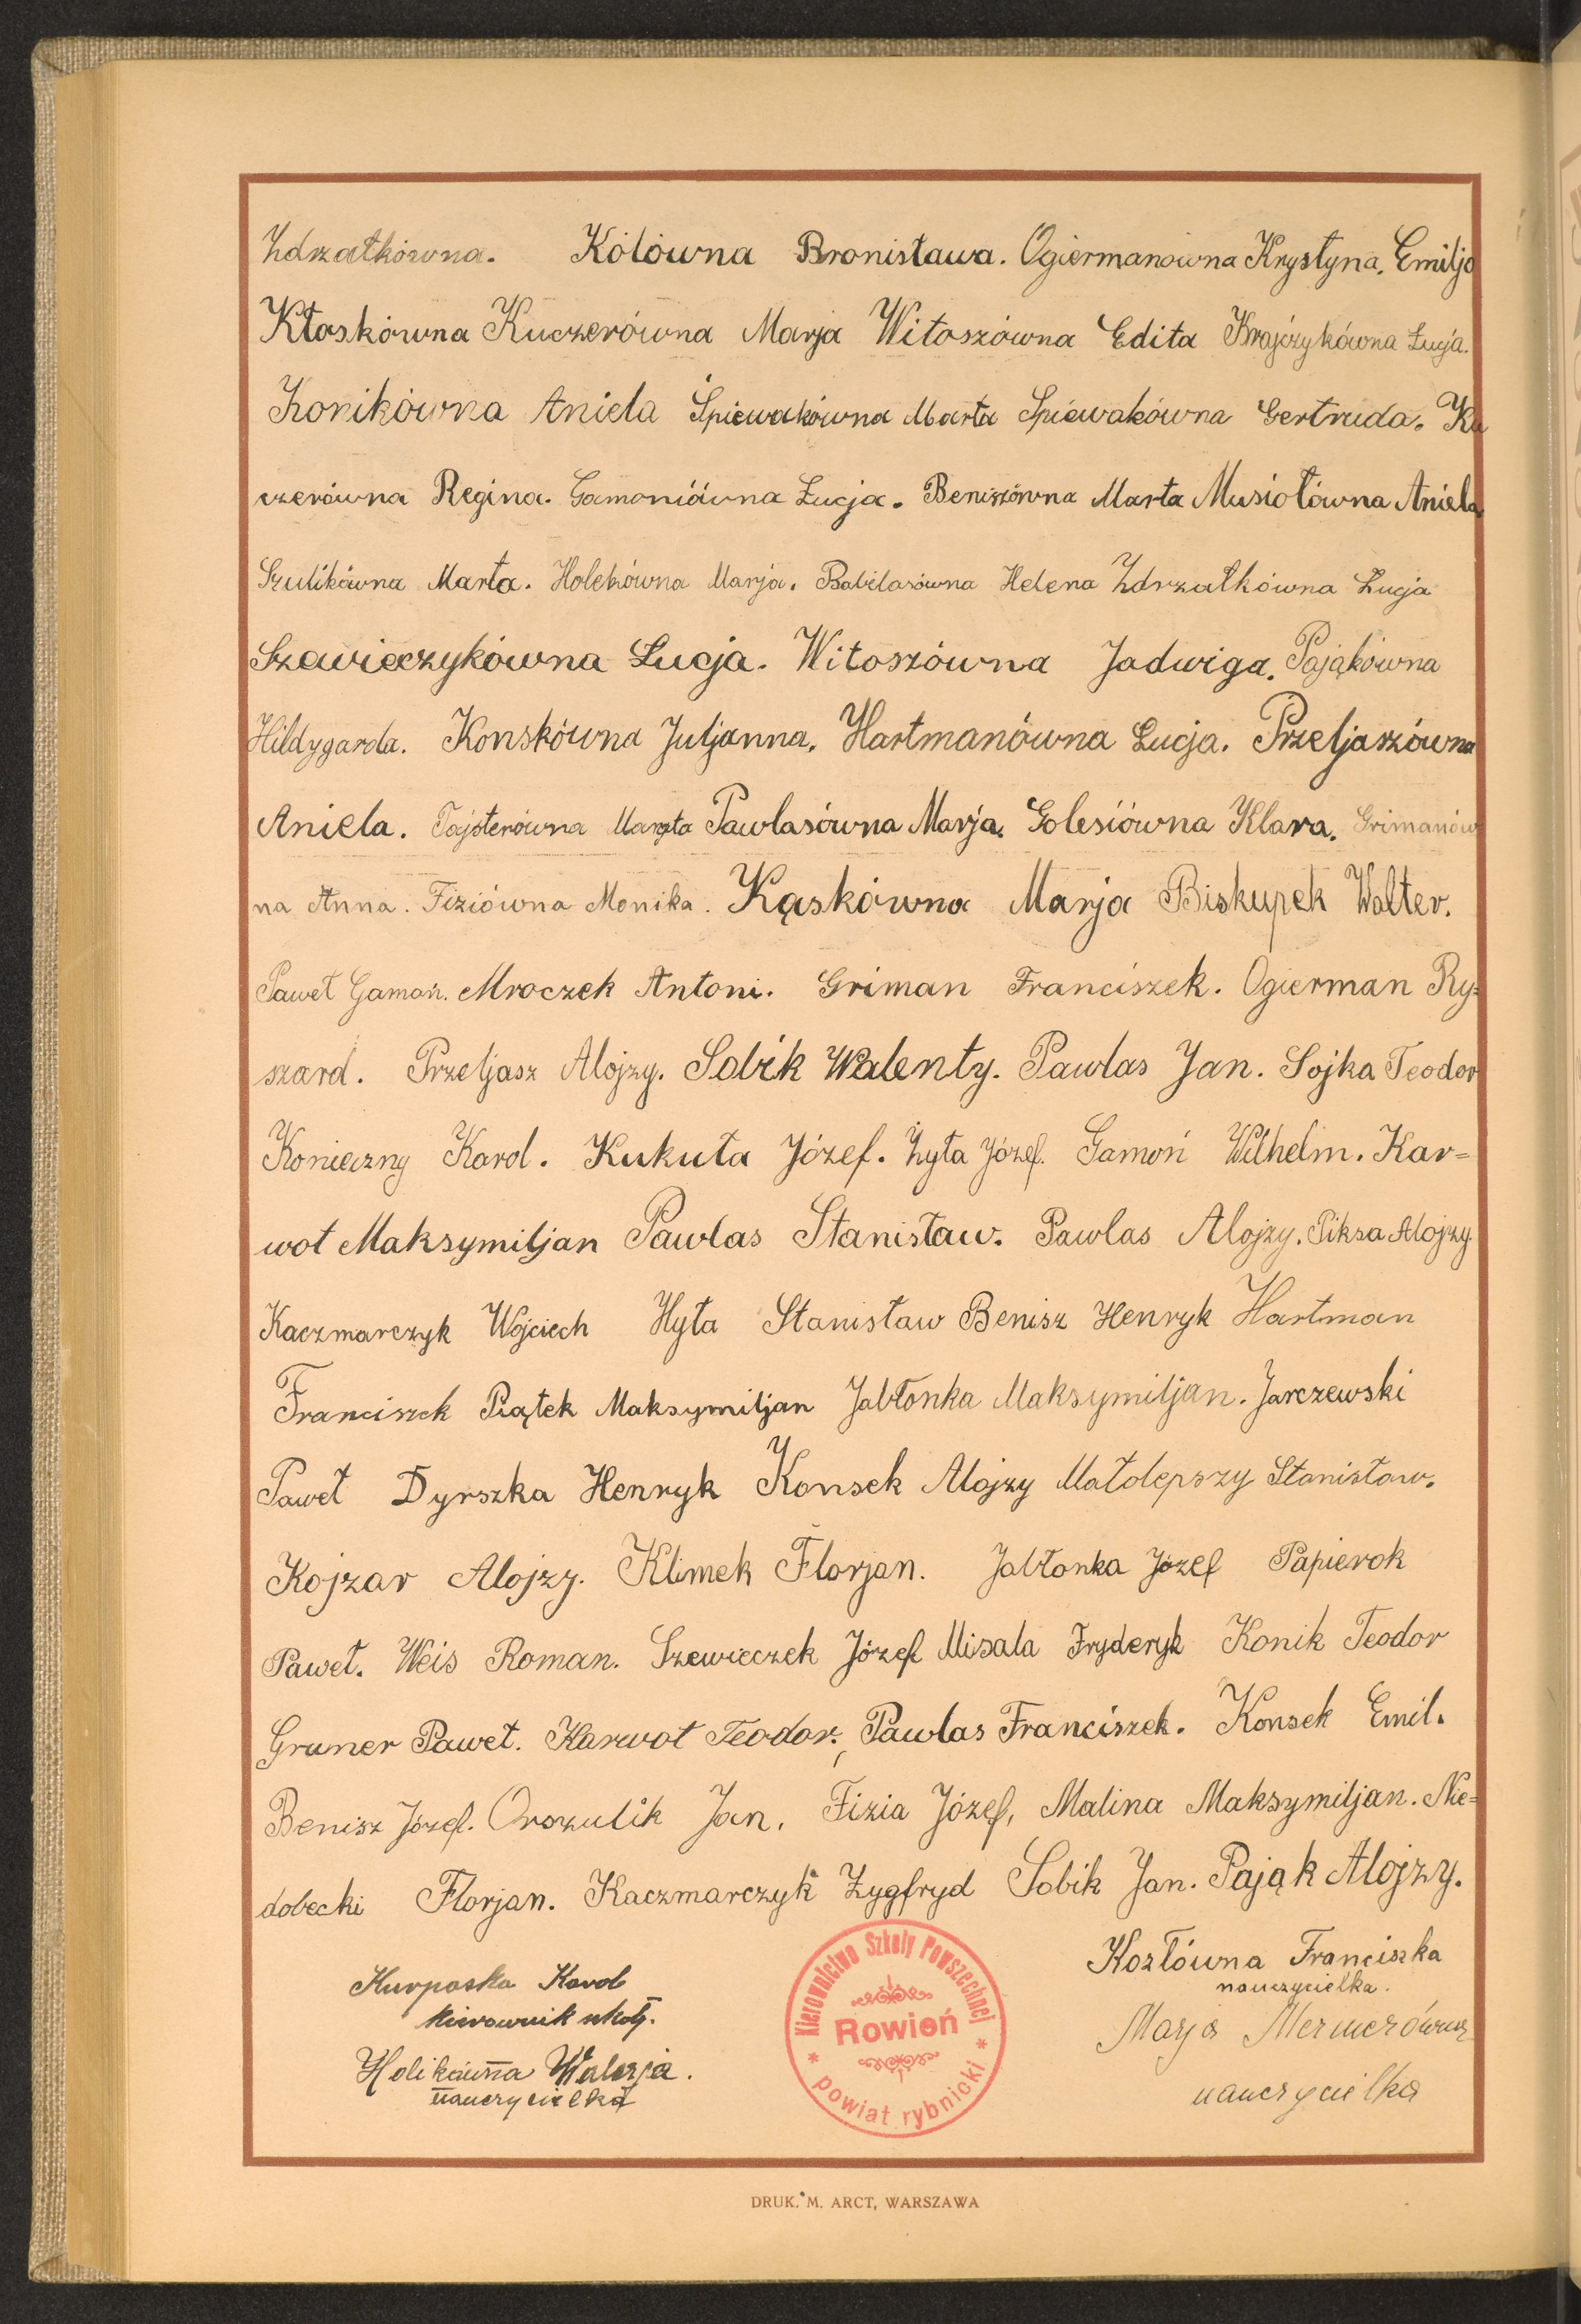 Zdrzałkówna. Kolówna Bronisława. Ogiermanówna Krystyna. Emilja
Kłoskówna Kuczerówna Marja Witoszówna Edita Krajczykówna Łucja.
Konikówna Aniela Śpiewakówna Marta Śpiewakówna Gertruda. Ku
czerówna Regina. Gamoniówna Łucja. Beniszówna Marta Musiołówna Aniela
Szulikówna Marta. Holekówna Marja. Babilasówna Helena Zdrzałkówna Łucja
Szewieczykówna Łucja. Witoszówna Jadwiga. Pająkówna
Hildygarda. Konskówna Juljanna. Hartmanówna Łucja. Przeljaszówna
Aniela. Tajsterówna Marta Pawlasówna Marja. Golesiówna Klara. Grimanów
na Anna. Fiziówna Monika. Kąskówna Marja Biskupek Walter.
Paweł Gamoń. Mroczek Antoni. Griman Franciszek. Ogierman Ry=
szard. Przeljasz Alojzy. Sobik Walenty. Pawlas Jan. Sojka Teodor
Konieczny Karol. Kukuła Józef. Żyła Józef. Gamoń Wilhelm. Kar=
wot Maksymiljan Pawlas Stanisław. Pawlas Alojzy. Piksa Alojzy
Kaczmarczyk Wojciech Hyła Stanisław Benisz Henryk Hartman
Franciszek Piątek Maksymiljan Jabłonka Maksymiljan. Jarczewski
Paweł Dyrszka Henryk Konsek Alojzy Małolepszy Stanisław.
Kojzar Alojzy. Klimek Florjan. Jabłonka Józef Papierok
Paweł. Weis Roman. Szewieczek Józef Misala Fryderyk Konik Teodor
Gruner Paweł. Karwot Teodor. Pawlas Franciszek. Konsek Emil.
Benisz Józef. Orszulik Jan. Fizia Józef, Malina Maksymiljan. Nie=
dobecki Florjan. Kaczmarczyk Zygfryd Sobik Jan. Pająk Alojzy.
Kurpaska Karol
kierownik szkoły.
Holikówna Walerja.
nauczycielka
Kierownictwo Szkoły Powszechnej
Rowień
* powiat rybnicki *
Kozłówna Franciszka
nauczycielka.
Marja
nauczycielka
DRUK. M. ARCT, WARSZAWA